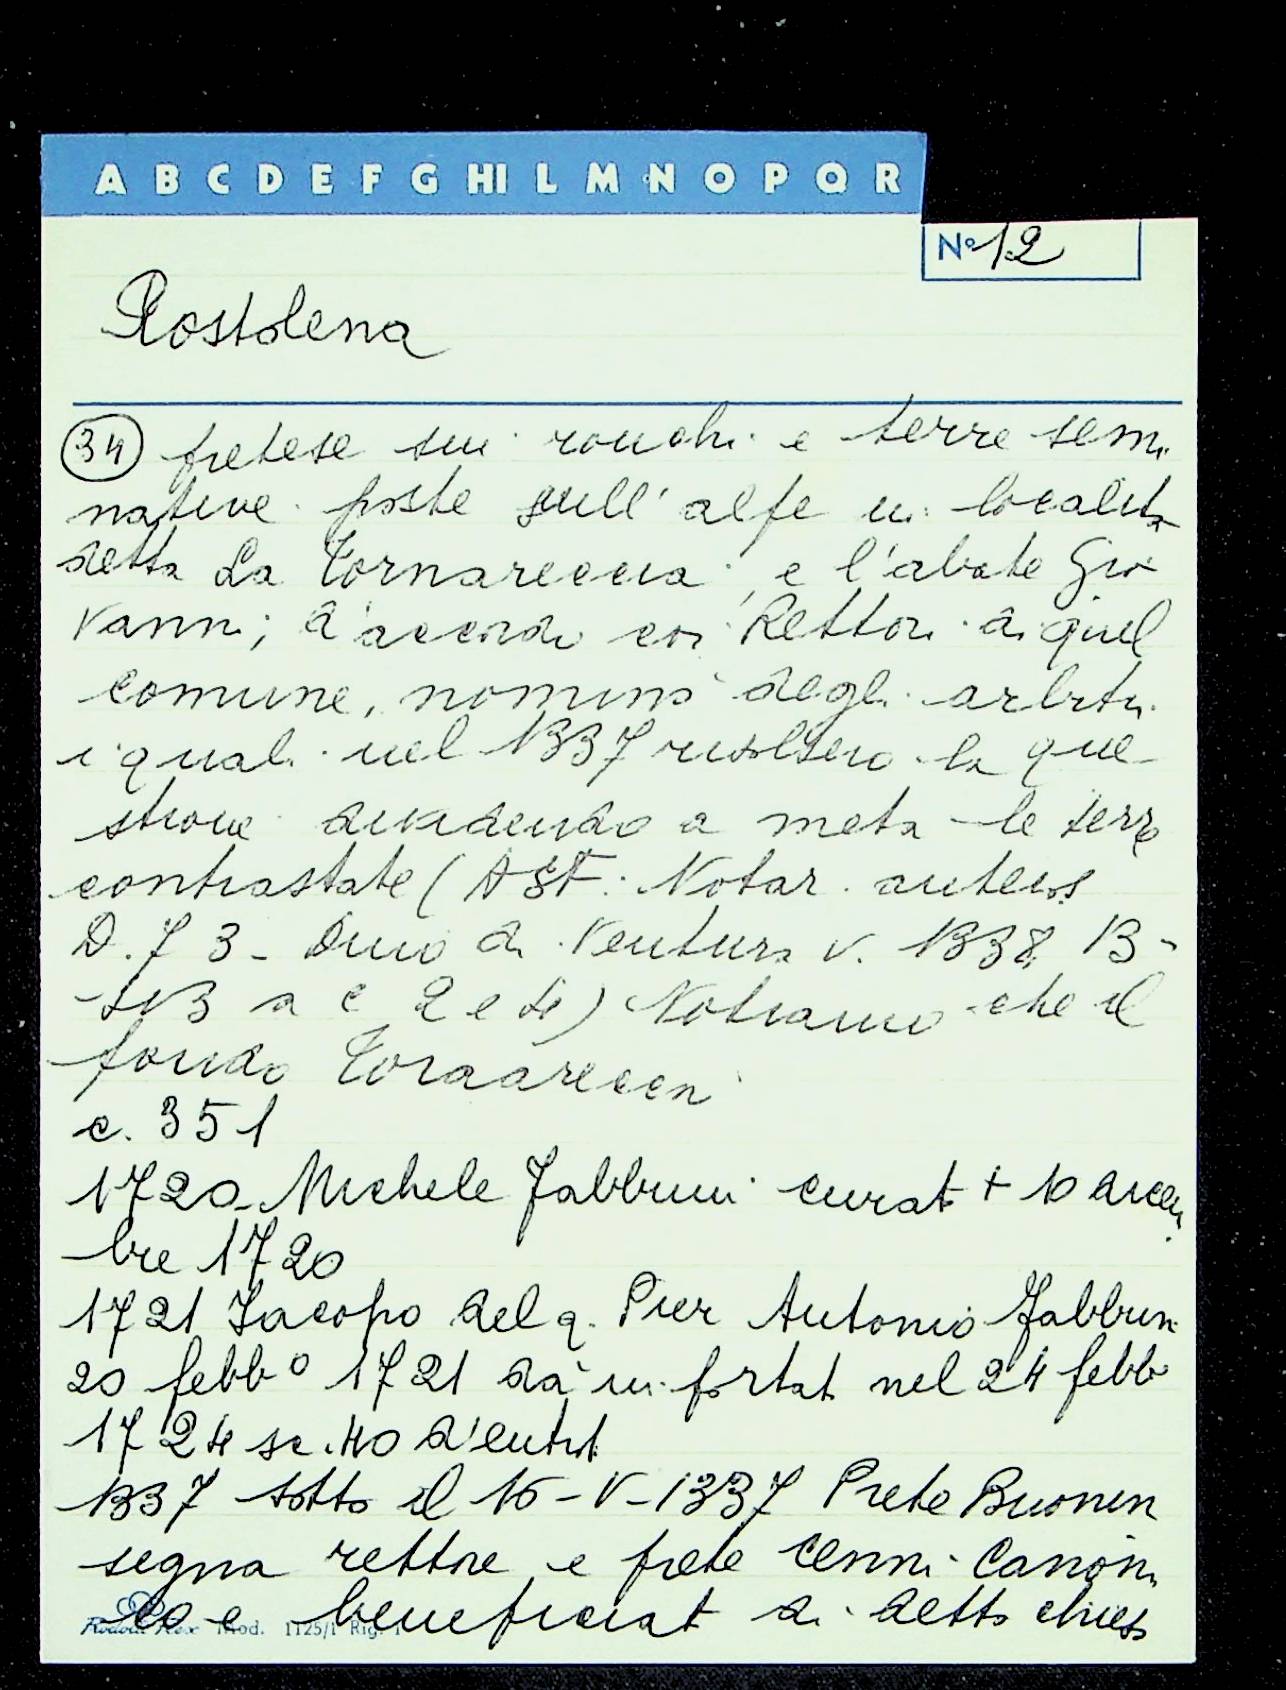 A B C D E F G HI L M N O P Q R
N° 12
Rostolena
34 pretese sui ronchi e terre semi
native poste sull'alpe in località
detta La Tornareccia, e l'abate Gio
vanni, d'accordo coi Rettori di quel
comune, nominò degli arbitri
i quali nel 1337 risolsero la que
stione dividendo a metà le terre
contrastate (ASF. Notar. antecos
D. 73 - Dino di Ventura v. 1338 13-
a c 2 e 4) Notiamo che il
fondo
c. 351
1720 Michele Fabbrini curat + 10 dicem
bre 1720
1721 Jacopo del q. Pier Antonio Fabbrin
20 febb° 1721 dà in portat nel 24 febb
1724 sc. 40 d'entrat
1337 sotto il 16-V-1337 Prete Buonin
segna rettore e prete Cenni Canoni
co e beneficiat di detta chiesa
Mod. 1125/1 Rig. 1